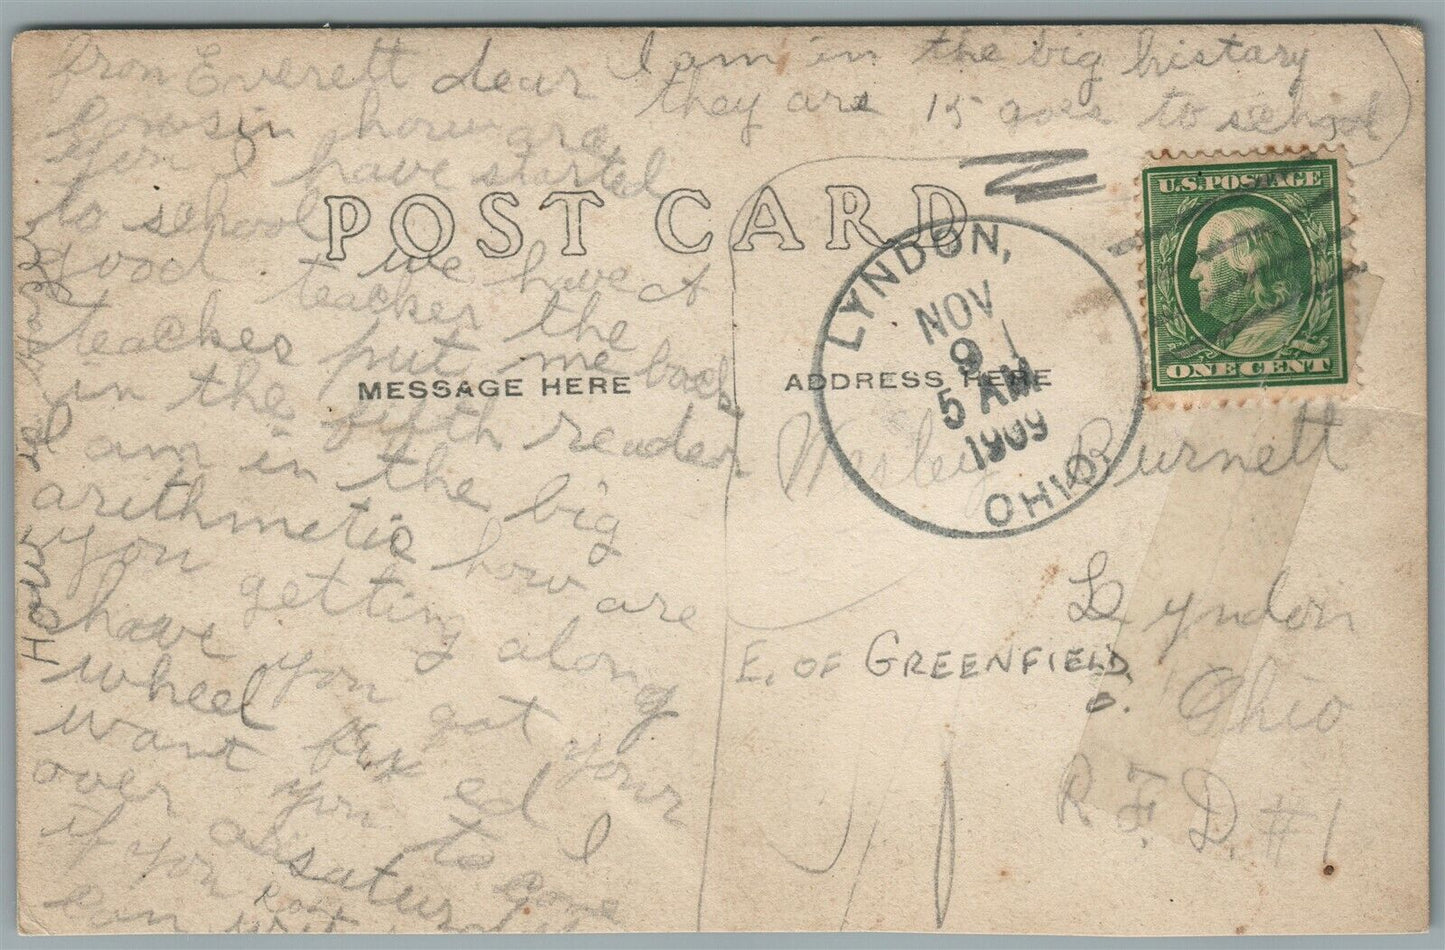 from Everett dear
cousin how are
you I have started
to school
good we have A
teacher the
teacher put me back
in the fifth reader
I am in the big
arithmetic how are
you getting along
have you got your
wheel fix ed I
want you to come
over saturday
if you
can
I am in the big histary
they are 15 goes to school
How is Hazel
POST CARD
MESSAGE HERE
ADDRESS HERE
U.S. POSTAGE
ONE CENT
LYNDON,
NOV
9
5 AM
1909
OHIO
Wesley Burnett
Lyndon
E. OF GREENFIELD
O.
Ohio
R. F. D. #1